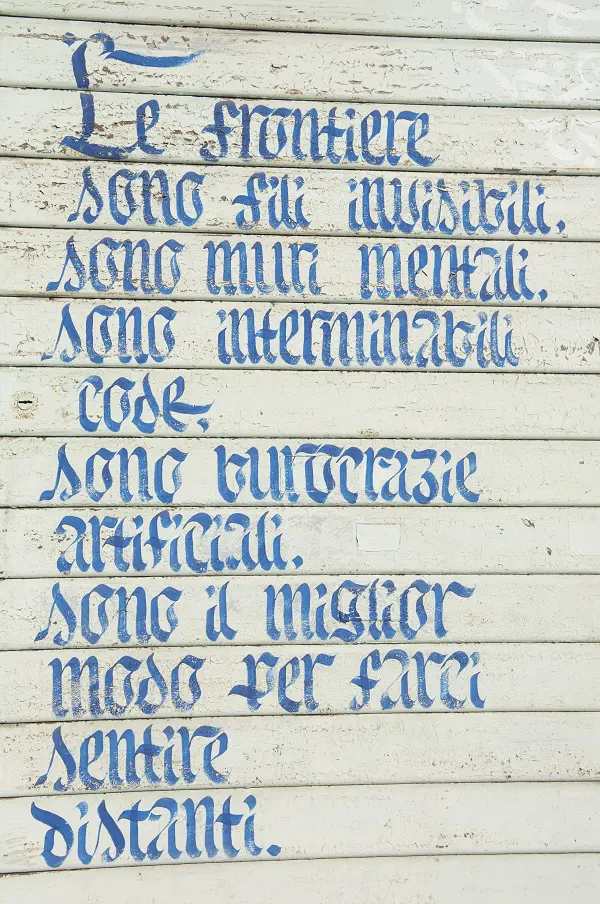 Le frontiere
sono fili invisibili,
sono muri mentali,
sono interminabili
code,
sono burocrazie
artificiali,
sono il miglior
modo per farci
sentire
distanti.